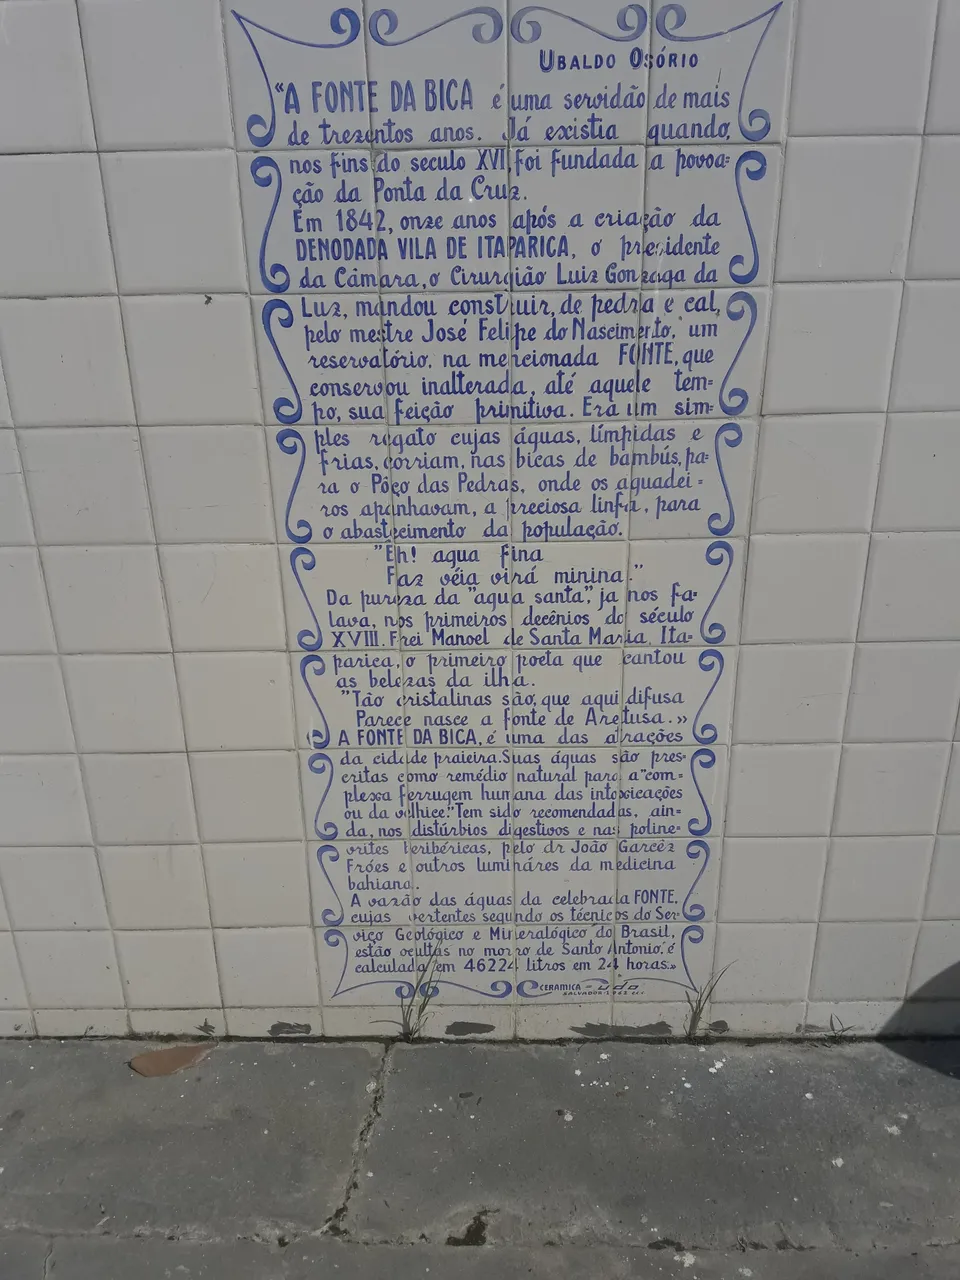 UBALDO OSÓRIO
“A FONTE DA BICA é uma servidão de mais
de trezentos anos. Já existia quando,
nos fins do seculo XVI, foi fundada a povoa=
ção da Ponta da Cruz.
Em 1842, onze anos após a criação da
DENODADA VILA DE ITAPARICA, o presidente
da Câmara, o Cirurgião Luiz Gonzaga da
Luz, mandou construir, de pedra e cal,
pelo mestre José Felipe do Nascimento, um
reservatório, na mencionada FONTE, que
conservou inalterada, até aquele tem=
po, sua feição primitiva. Era um sim=
ples regato cujas águas, límpidas e
frias, corriam, nas bicas de bambús, pa=
ra o Pôço das Pedras, onde os aguadei=
ros apanhavam, a preciosa linfa, para
o abastecimento da população.
"Êh! agua fina
Faz véia virá minina."
Da pureza da "agua santa", ja nos fa=
lava, nos primeiros decênios do século
XVIII. Frei Manoel de Santa Maria, Ita=
parica, o primeiro poeta que cantou
as belezas da ilha.
"Tão cristalinas são, que aqui difusa
Parece nasce a fonte de Aretusa.»
A FONTE DA BICA, é uma das atrações
da cidade praieira. Suas águas são pres=
critas como remédio natural para a "com=
plexa ferrugem humana das intoxicações
ou da velhice." Tem sido recomendadas, ain=
da, nos distúrbios digestivos e nas poline=
vrites beribéricas, pelo dr João Garcêz
Fróes e outros luminares da medicina
bahiana.
A vazão das águas da celebrada FONTE,
cujas vertentes segundo os técnicos do Ser=
viço Geológico e Mineralógico do Brasil,
estão ocultas no morro de Santo Antonio, é
calculada em 46224 litros em 24 horas.»
CERAMICA - udo